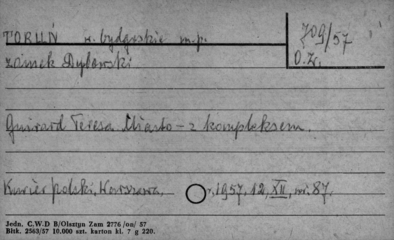 TORUŃ w. bydgoskie m.p.
709/57
zamek Dybowski
O.Zr.
Guirard Teresa Miasto - z kompleksem.
Kurier polski, Warszawa, r. 1957, 12, XII, nr. 87.
Jedn. C.W.D B/Olsztyn Zam 2776 /on/ 57
Bitk. 2563/57 10.000 szt. karton kl. 7 g 220.